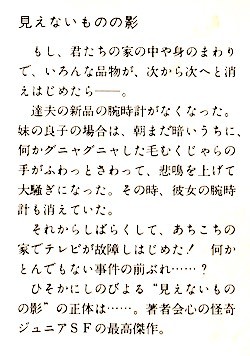 見えないものの影
もし、君たちの家の中や身のまわり
で、いろんな品物が、次から次へと消
えはじめたら──。
達夫の新品の腕時計がなくなった。
妹の良子の場合は、朝まだ暗いうちに、
何かグニャグニャした毛むくじゃらの
手がふわっとさわって、悲鳴を上げて
大騒ぎになった。その時、彼女の腕時
計も消えていた。
それからしばらくして、あちこちの
家でテレビが故障しはじめた！　何か
とんでもない事件の前ぶれ……？
ひそかにしのびよる“見えないもの
の影”の正体は……。著者会心の怪奇
ジュニアＳＦの最高傑作。